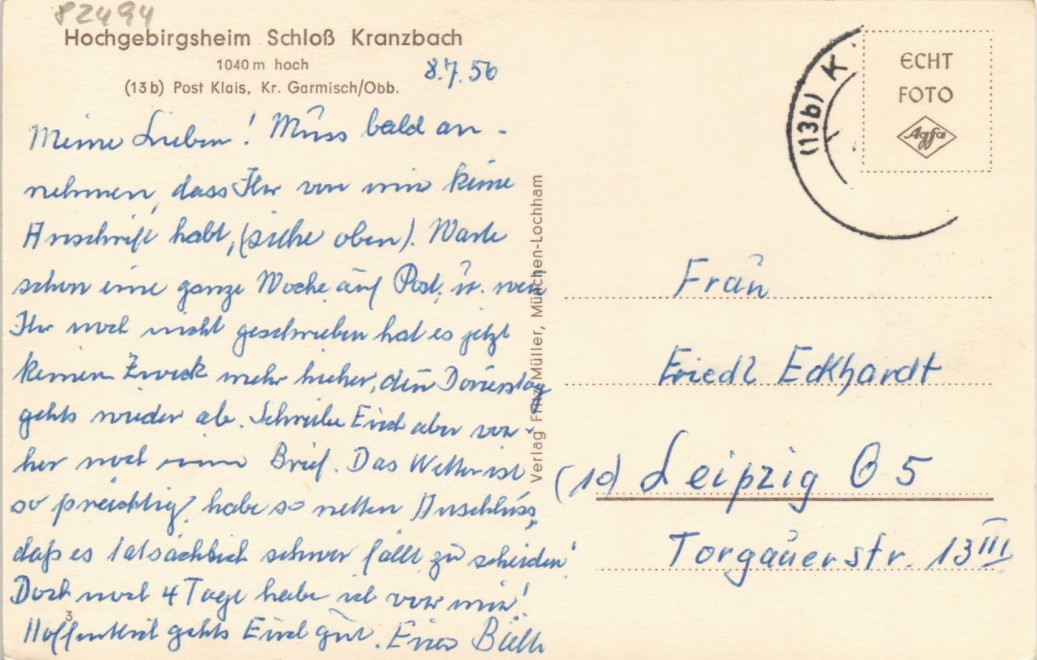 82494
Hochgebirgsheim Schloß Kranzbach
1040 m hoch
(13b) Post Klais, Kr. Garmisch/Obb.
8.7.56
Meine Lieben! Muss bald an-
nehmen, dass Ihr von mir keine
Anschrift habt, (siehe oben). Warte
schon eine ganze Woche auf Post, u. wenn
Ihr noch nicht geschrieben hat es jetzt
keinen Zweck mehr hieher, den Donnerstag
gehts wieder ab. Schreibe Euch aber vor-
her noch einen Brief. Das Wetter ist
so prächtig, habe so netten Anschluss,
daß es tatsächlich schwer fällt zu scheiden!
Doch noch 4 Tage habe ich vor mir!
Hoffentlich gehts Euch gut. Eure
3
Verlag Fritz Müller, München-Lochham
(13b) K
ECHT
FOTO
Agfa
Frau
Friedl Eckhardt
(10) Leipzig O 5
Torgauerstr. 13 III